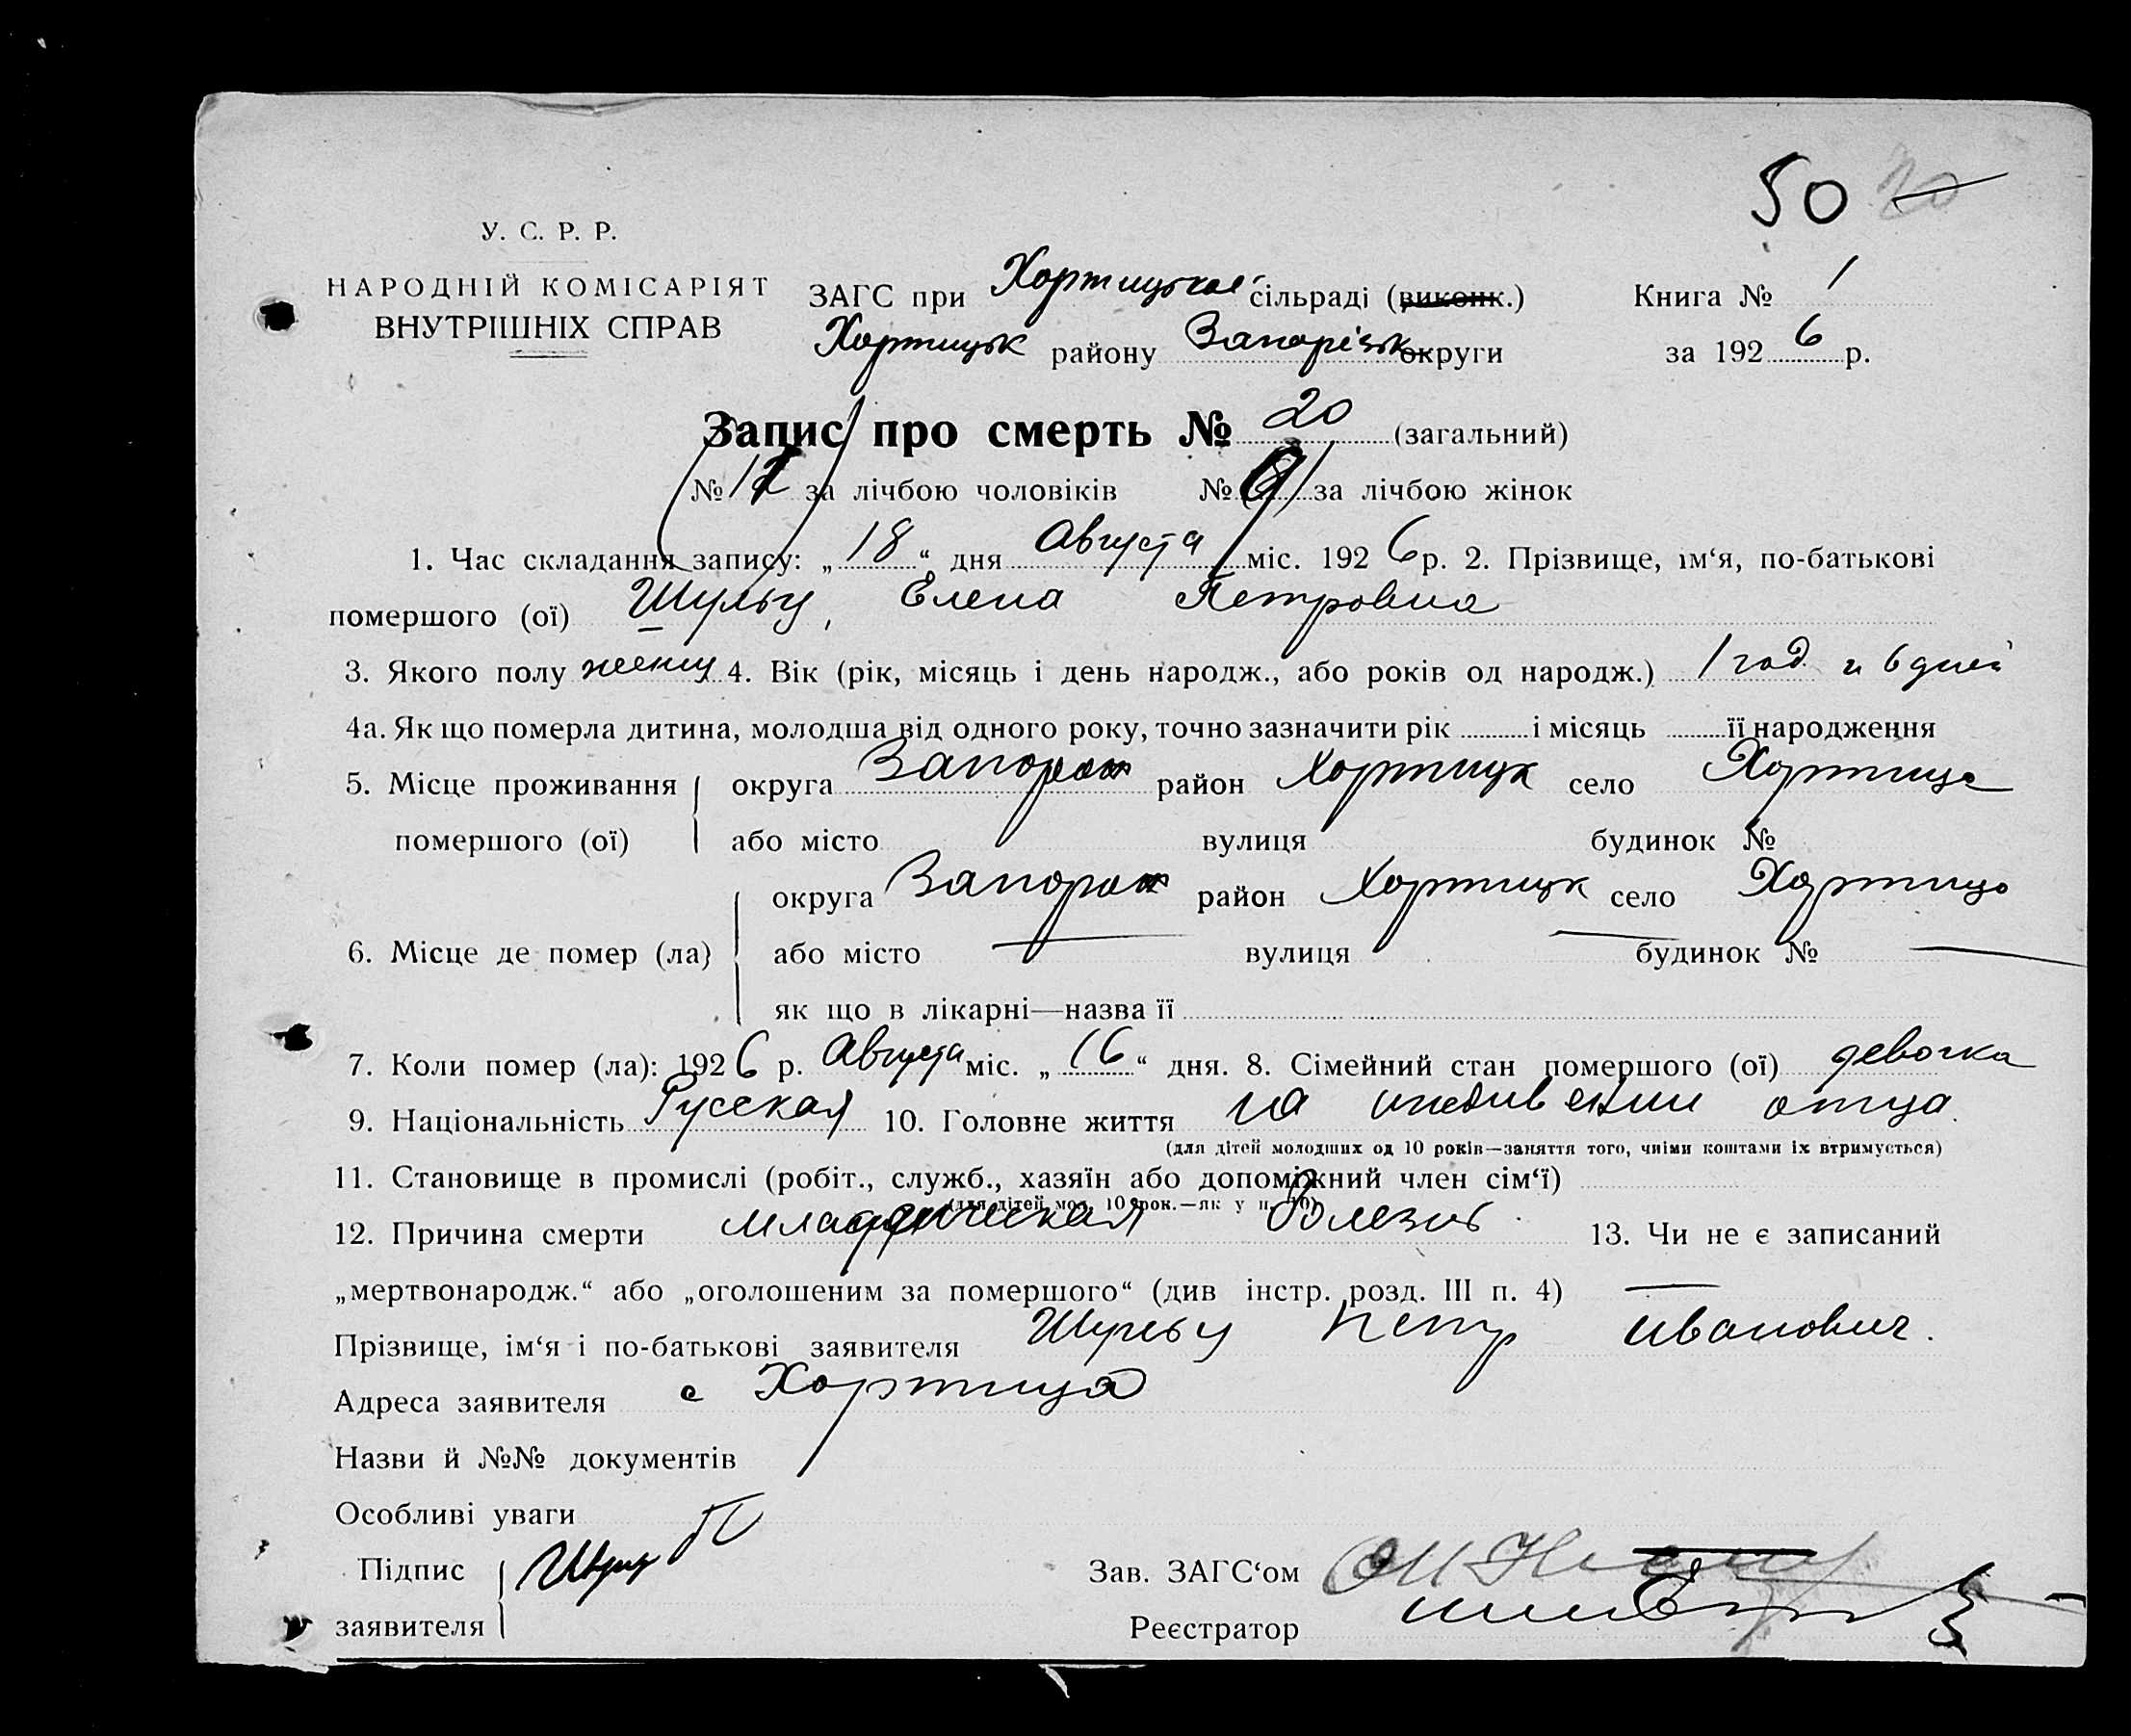 50 20
У. С. Р. Р.
НАРОДНІЙ КОМІСАРІЯТ
ВНУТРІШНІХ СПРАВ
ЗАГС при Хортицької сільраді (виконк.) Книга № 1
Хортицьк району Запорізьк округи за 1926 р.
Запис про смерть № 20 (загальний)
№ 12 за лічбою чоловіків № за лічбою жінок
1. Час складання запису: „18“ дня Августа міс. 1926 р. 2. Прізвище, ім‘я, по-батькові
помершого (ої) Шульц, Елена Петровна
3. Якого полу женщ 4. Вік (рік, місяць і день народж., або років од народж.) 1 год и 6 дней
4а. Як що померла дитина, молодша від одного року, точно зазначити рік і місяць її народження
5. Місце проживання округа Запорож район Хортицк село Хортица
помершого (ої) або місто вулиця будинок №
округа Запорож район Хортицк село Хортица
6. Місце де помер (ла) або місто — вулиця — будинок № —
як що в лікарні—назва її
7. Коли помер (ла): 1926 р. Августа міс. „16“ дня. 8. Сімейний стан помершого (ої) девочка
9. Національність Русская 10. Головне життя на иждивении отца
(для дітей молодших од 10 років—заняття того, чиїми коштами їх втримується)
11. Становище в промислі (робіт., служб., хазяїн або допоміжний член сім‘ї)
(для дітей мол. 10 рок.—як у п. 10)
12. Причина смерти болезнь 13. Чи не є записаний
„мертвонародж.“ або „оголошеним за помершого“ (див інстр. розд. III п. 4) —
Прізвище, ім‘я і по-батькові заявителя Шульц Петр Иванович.
Адреса заявителя с Хортица
Назви й №№ документів
Особливі уваги
Підпис Зав. ЗАГС‘ом
заявителя Реєстратор